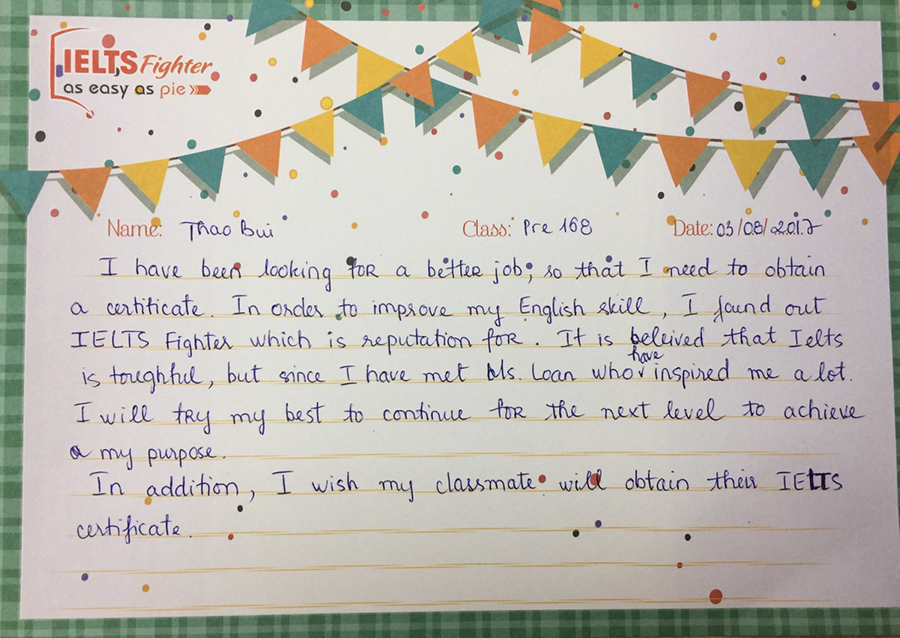 IELTS Fighter
as easy as pie
Name: Thao Bui Class: Pre 168 Date: 03/08/2017
I have been looking for a better job, so that I need to obtain
a certificate. In order to improve my English skill, I found out
IELTS Fighter which is reputation for. It is beleived that Ielts
have
is toughful, but since I have met Ms. Loan who inspired me a lot.
I will try my best to continue for the next level to achieve
my purpose.
In addition, I wish my classmate will obtain their IELTS
certificate.